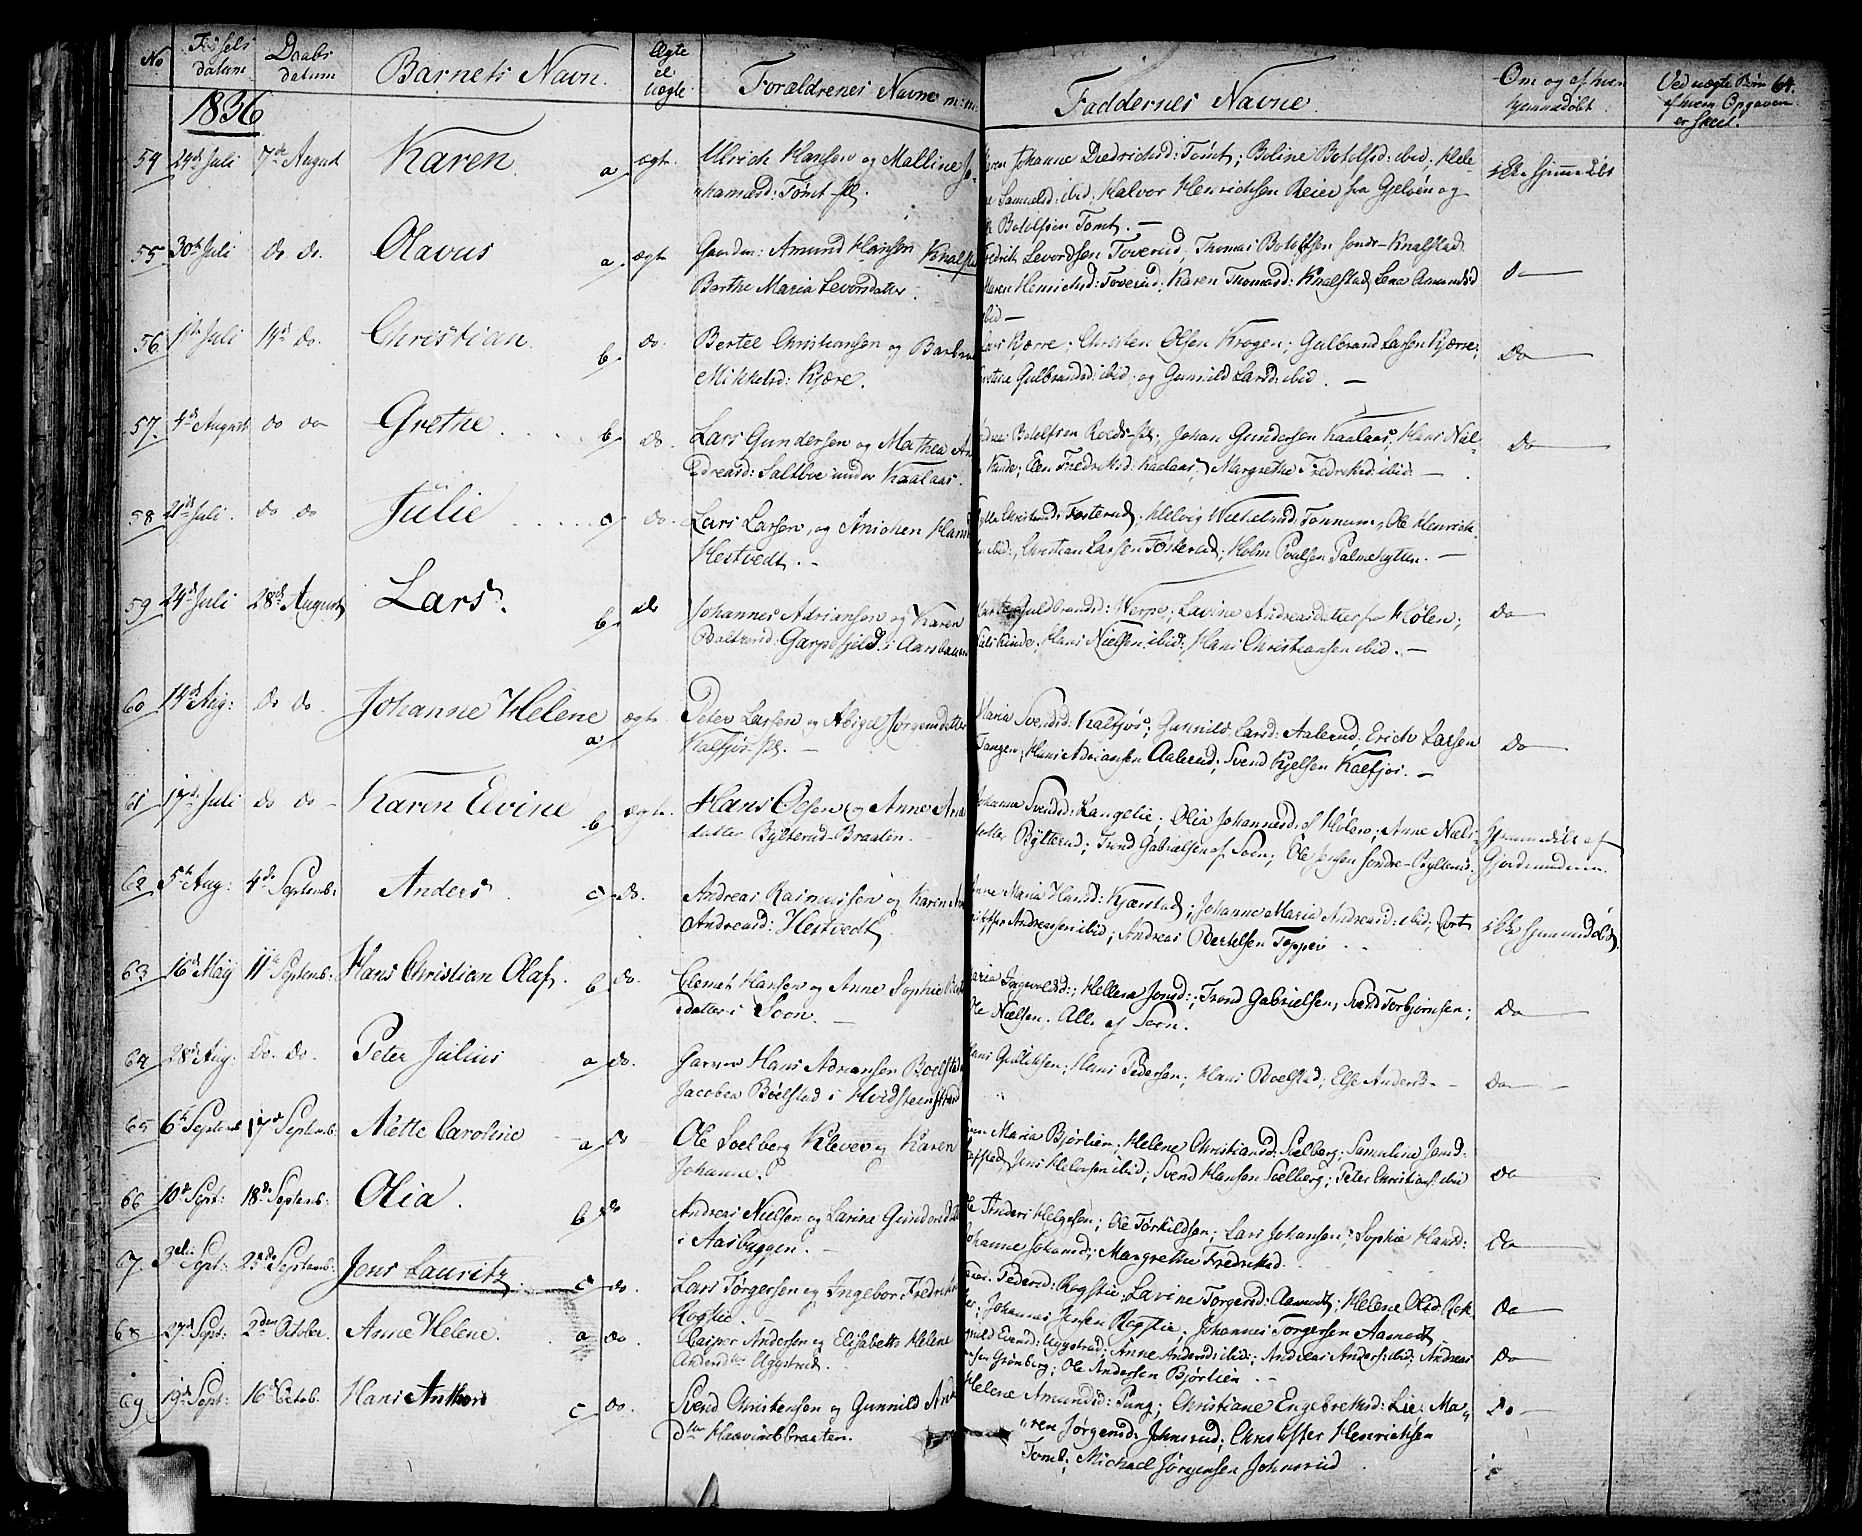 No Fødsels datum Daabs datum Barnets Navn. Ægte el uægte Forældrenes Navne m:m: Faddernes Navne. Om og af hvem hjemmedøbt Ved uægte Børn af hvem Opgaven er skeet. 64.
1836
54 29de Juli 7de August Karen a ægt. Ulrich Hansen og Malline Jo-
hannesd: Tømt
Johanne Diedrichsd: Tømt; Boline Botolfsd: ibid, Hele-
ne Samuelsd: ibid; Halvor Henrichsen Reier fra Gjeløen og
Botolfsen Tømt. —
ikke hjemmedøbt
55 30te Juli do do. Olavus a. ægt. Gaardm: Amund Hansen Knalstad
Berthe Maria Levorsdatter.
Fredrik Levordsen Toverud; Thomas Botolfsen søndr-Knalstad
Maren Henrichsd: Toverud; Karen Thomasd: Knalstad, Lena Amundsd
ibid —
do
56 1ste Juli 14de do. Christian b. do. Bertel Christiansen og Barbra
Mikkelsd: Kjære.
Lars Kjærre; Christen Olsen Krogen; Gulbrand Larsen Kjærre;
Grethe Gulbrandsd: ibid; og Gunnild Larsd: ibid. —
Do
57. 4de August do do Grethe b. do. Lars Gundersen og Mathea An-
dreasd: Saltboe under Kaalaas.
Botolfsen Roeds-; Johan Gundersen Kaalaas; Hans Niel-
Kinde; Elen Fredriksd: Kaalaas; Margrethe Fredriksd: ibid. —
Do
58 21de Juli. do do Julie c. do. Lars Larsen, og Anichen Hansd
Hestvedt. —
Christiansd: Fosterud; Helvig Wilhelmsd: Tonnum; Ole Henrich-
ibid; Christian Larsen Fosterud; Holm Poulsen Palmehytten. —
59 24de Juli 28de August Lars. b. do Johannes Adriansen og Karen
Baltzersd: Garpefjeld i Aarsbaasen
Gulbrandsd: Werpe; Lavine Andreasdatter fra Hølen;
Niels Kinde; Hans Nielsen ibid; Hans Christiansen ibid. —
Do
60 14de Aug: do do. Johanne Helene a ægte. Peter Larsen og Abigel Jørgensdatter
Kalfjøs. —
Maria Svendsd: Kalfjøs; Gunnild Larsd: Aalerud; Erich Larsen
Tangen; Hans Adriansen Aalerud; Svend Kjelsen Kalfjøs. —
Do
61 17de Juli do do Karen Elvine b. ægte. Hans Olsen og Anne
datter Bÿtterud-Braaten.
Johanne Svendsd: Langelie; Olia Johannesd: af Hølen; Anne Niels-
datter Bÿtterud; Trond Gabrielsen af Soon; Ole Jensen søndre-Bytterud.
Hjemmedøbt af
Gjordemoderen.
62 5te Aug: 4de Septemb: Anders. c. do. Andreas Rasmussen og Karen
Andreasd: Hestvedt.
Anne Maria Hansd: Kjærstad; Johanne Maria Andreasd: ibid; Cort
Andreassen ibid; Andreas Bertelsen Topper
ikke hjemmedøbt
63 16de May 11te Septemb: Hans Christian Olaf. b. do. Clemet Hansen og Anne Sophie
datter i Soon. —
Maria Ingvoldsd:; Hellena Jonsd:; Trond Gabrielsen, Svend Torbjørnsen;
Ole Nielsen. Alle af Soon.
Do
64 28de Aug: do. do. Peter Julius a do. Hans Adriansen Boelstad
Jacobea Bøelstad i Hvidsteenstrand
Hans Gullicksen; Hans Pedersen; Hans Boelstad; Else Andersd —
Do —
65 6te Septemb 17de Septemb: Mette Caroline a do Ole Soelberg Kleven og Karen
Johanne
Maria Bjørlien; Helene Christiansd: Soelberg; Samuline Jensd:
Jens Helversen ibid; Svend Hansen Soelberg; Peter Christians: ibid
Do
66 10de Sept: 18de Septemb: Olia. b do Andreas Nielsen og Larine Gundersd
i Aasbaggen. —
Ole Anders Helgesen; Ole Torkildsen; Lars Johansen; Sophie Hansd:
Johanne Johansd; Margrethe Fredriksd.
Do
67 3die Sept: 25de Septemb: Jens Lauritz. c. do. Lars Torgersen og Ingebor Fredriks
Rogstie. —
Pedersd: Rogstie; Lavine Torgersd: Aamodt; Helene Olsd: Rok-
; Johannes Jensen Rogstie; Johannes Torgersen Aamodt
Do
68 27de Sept: 2den October. Anne Helene. a do. Casper Andersen og Elisabeth Helene
Andersdtr Uggstad.
Evensd: Uggstad; Anne Andersd: ibid; Andreas Anders: ibid; Andreas
Grønberg; Ole Andersen Bjørlien. —
Do
69 19de Sept: 16de Octob. Hans Anthon c. do. Svend Christensen og Gunnild And
dtr Haavindbraaten.
Helene Amundsd: Pung; Christiane Engebretsd: Lie; Ma-
ren Jørgensd: Johnsrud; Christoffer Henrichsen
Tomb; Michael Jørgensen Johnsrud
Do —